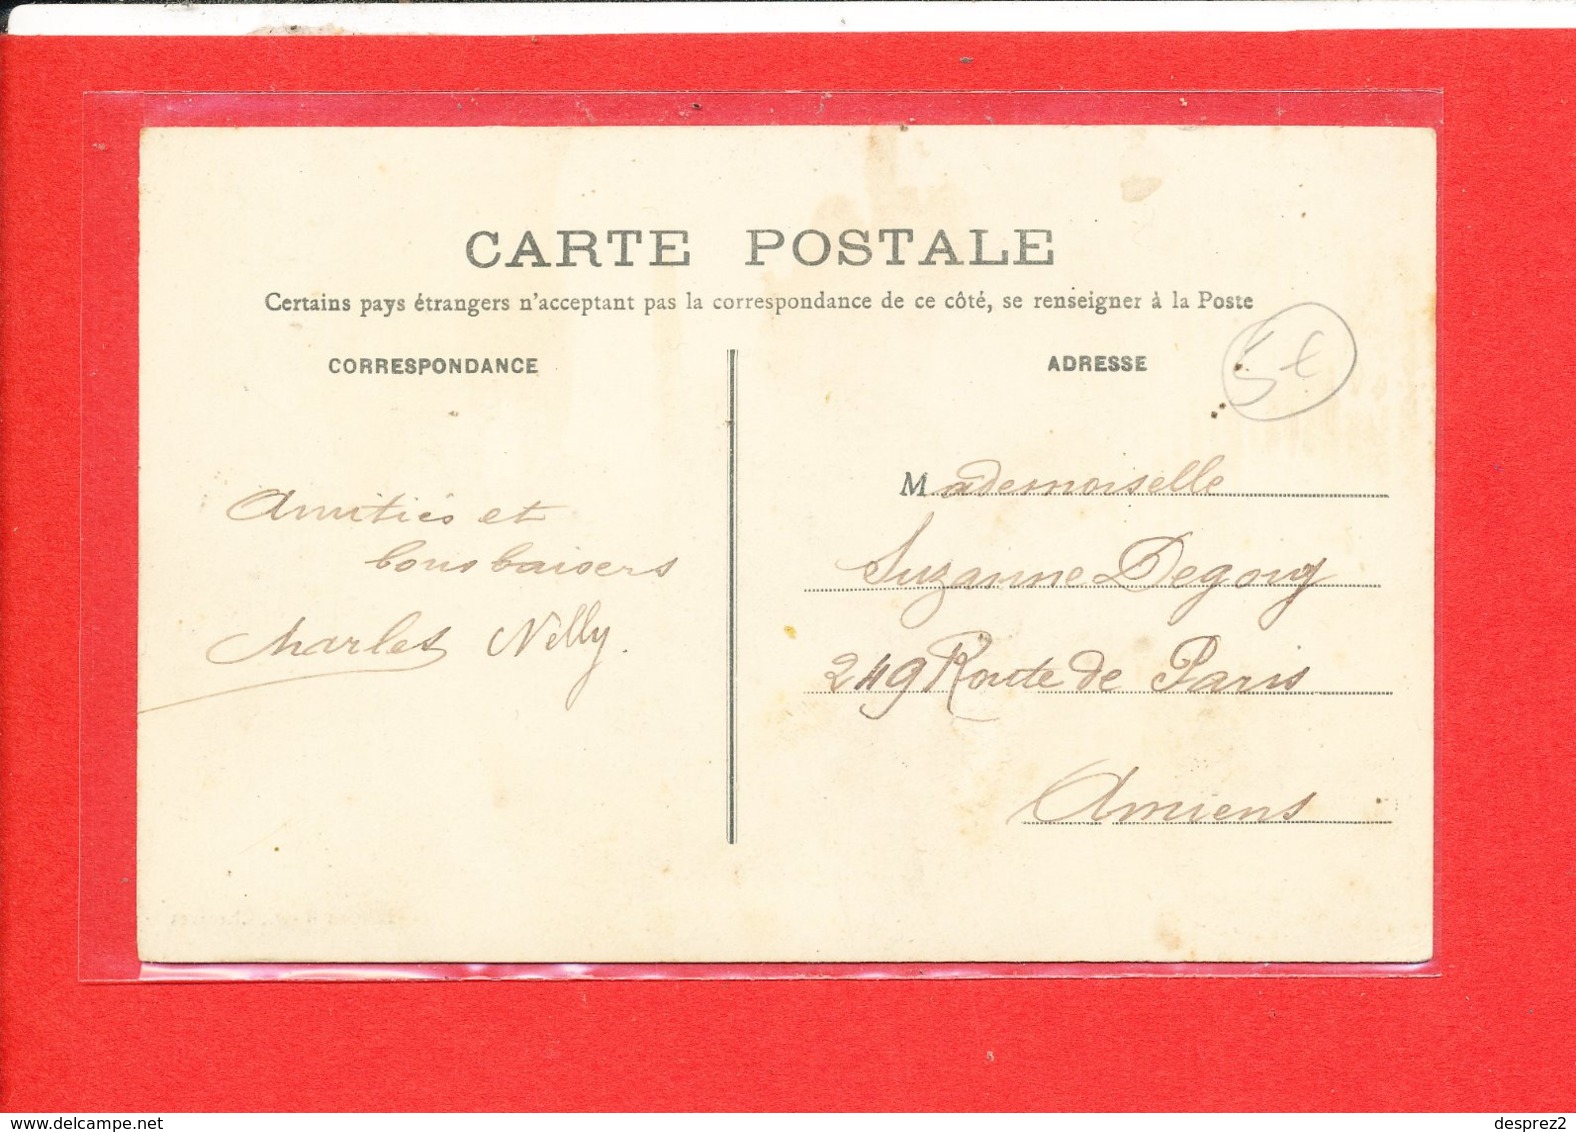 CARTE POSTALE
Certains pays étrangers n'acceptant pas la correspondance de ce côté, se renseigner à la Poste
CORRESPONDANCE
ADRESSE
5€
Amitiés et
bons baisers
Charles Nelly.
Mademoiselle
Suzanne Degouy
249 Route de Paris
Amiens
www.delcampe.net
desprez2